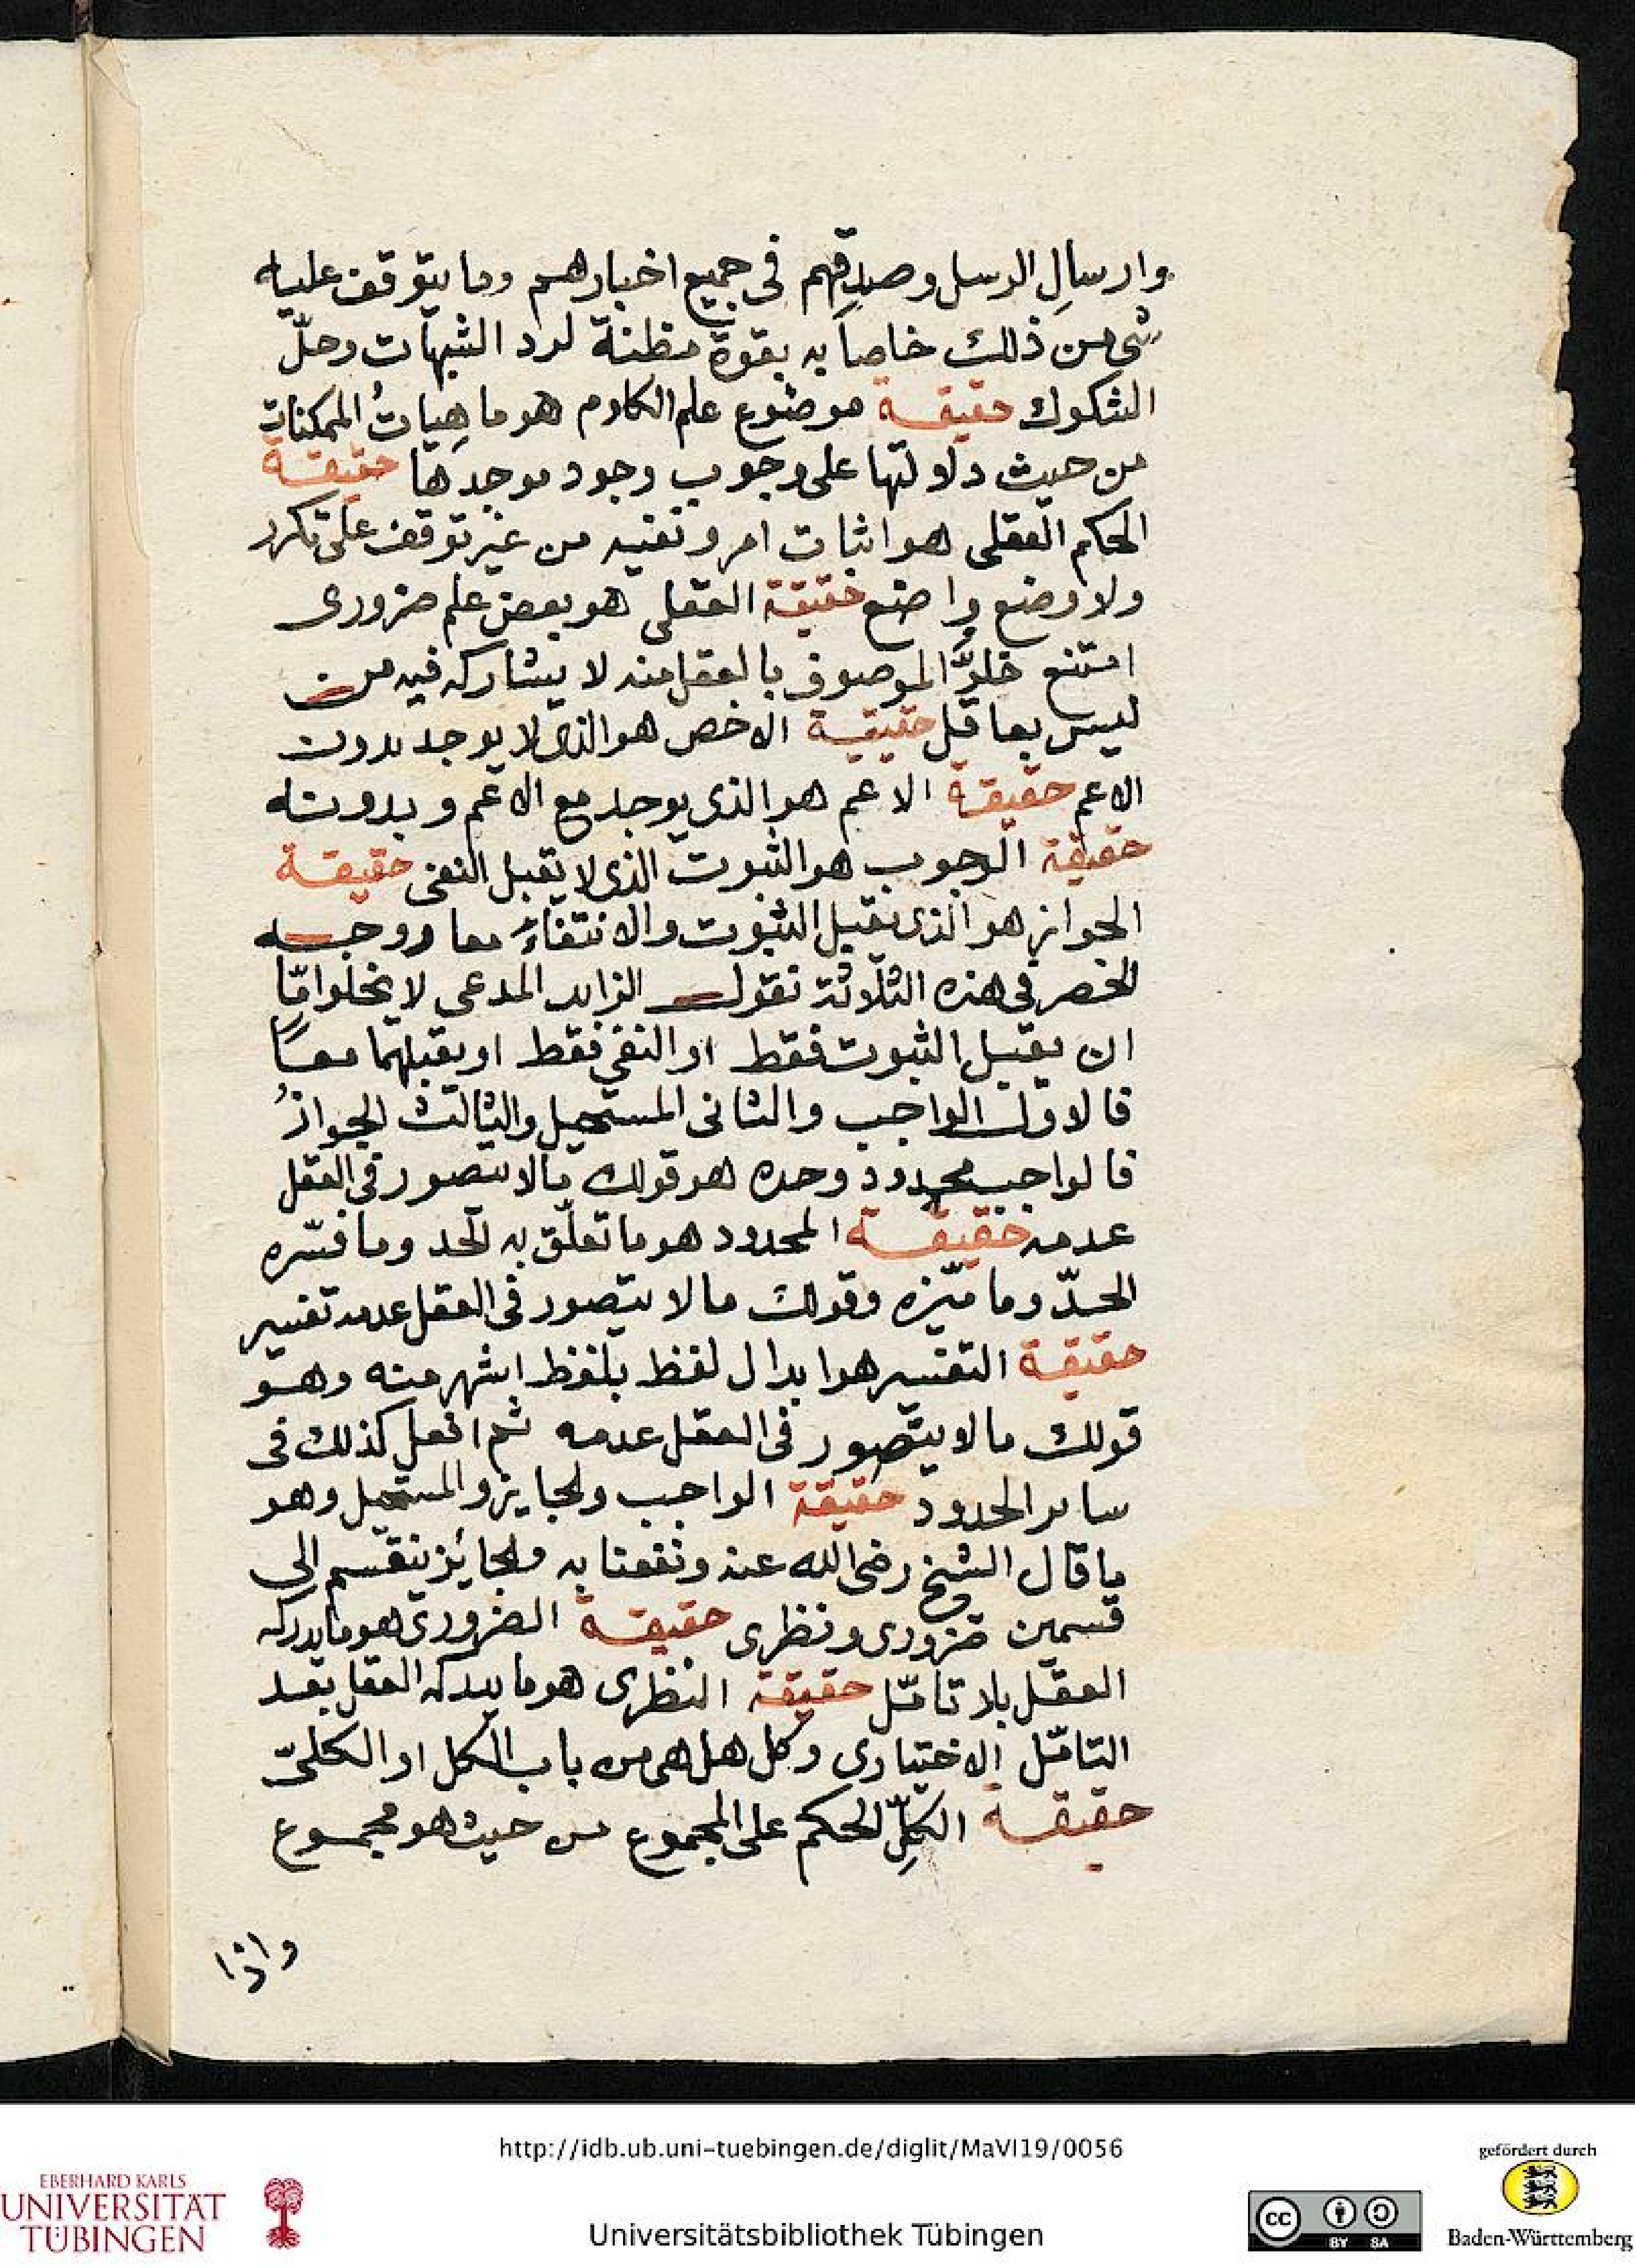 وارسالِ الرسل وصدقِهم فى جميع اخبارهم وما يتوقف عليه
شى من ذلك خاصاً به بقوة مظنة لرد الشبهات وحلّ
الشكوك حقيقة موضوع علم الكلام هو ماهِياتُ الممكنات
من حيث دلالتها على وجوب وجود موجدها حقيقة
الحكم العقلى هو اثبات امر ونفيه من غير توقف على تكرر
ولا وضع واضع حقيقة العقلى هو بعض علم ضرورى
امتنع خلوُّ الموصوف بالعقل منه لا يشاركه فيه من
ليس بعاقل حقيقة الاخص هو الذى لا يوجد بدون
الاعم حقيقة الاعم هو الذى يوجد مع الاعم وبدونه
حقيقة الوجوب هو الثبوت الذى لا يقبل النفى حقيقة
الجواز هو الذى يقبل الثبوت والانتفاء معا ووجه
الحصر فى هذه الثلاثة تقول الزايد المدعى لا يخلو امّا
ان يقبل الثبوت فقط او النفى فقط او يقبلهما معاً
فالاول الواجب والثانى المستحيل والثالث الجوازُ
فالواجب محدود وحده هو قولك مالا يتصور فى العقل
عدمه حقيقة المحدود هو ما تعلّق به الحد وما فسّره
الحدّ وما ميّزه وقولك ما لا يتصور فى العقل عدمه تفسير
حقيقة التفسير هو ابدال لفظ بلفظ اشهر منه وهو
قولك مالا يتصور فى العقل عدمه ثم افعل كذلك فى
ساير الحدود حقيقة الواجب والجايز والمستحيل وهو
ما قال الشيخ رضى الله عنه ونفعنا به والجائز ينقسم الى
قسمين ضرورى ونظرى حقيقة الضرورى هو ما يدركه
العقل بلا تامّل حقيقة النظرى هو ما يدركه العقل بعد
التامّل الاختيارى وكل هل هى من باب الكل او الكلىّ
حقيقة الكلِّ الحكم على المجموع من حيث هو مجموع
واذا
http://idb.ub.uni-tuebingen.de/diglit/MaVI19/0056
Universitätsbibliothek Tübingen
EBERHARD KARLS
UNIVERSITÄT
TÜBINGEN
cc BY SA
gefördert durch
Baden-Württemberg